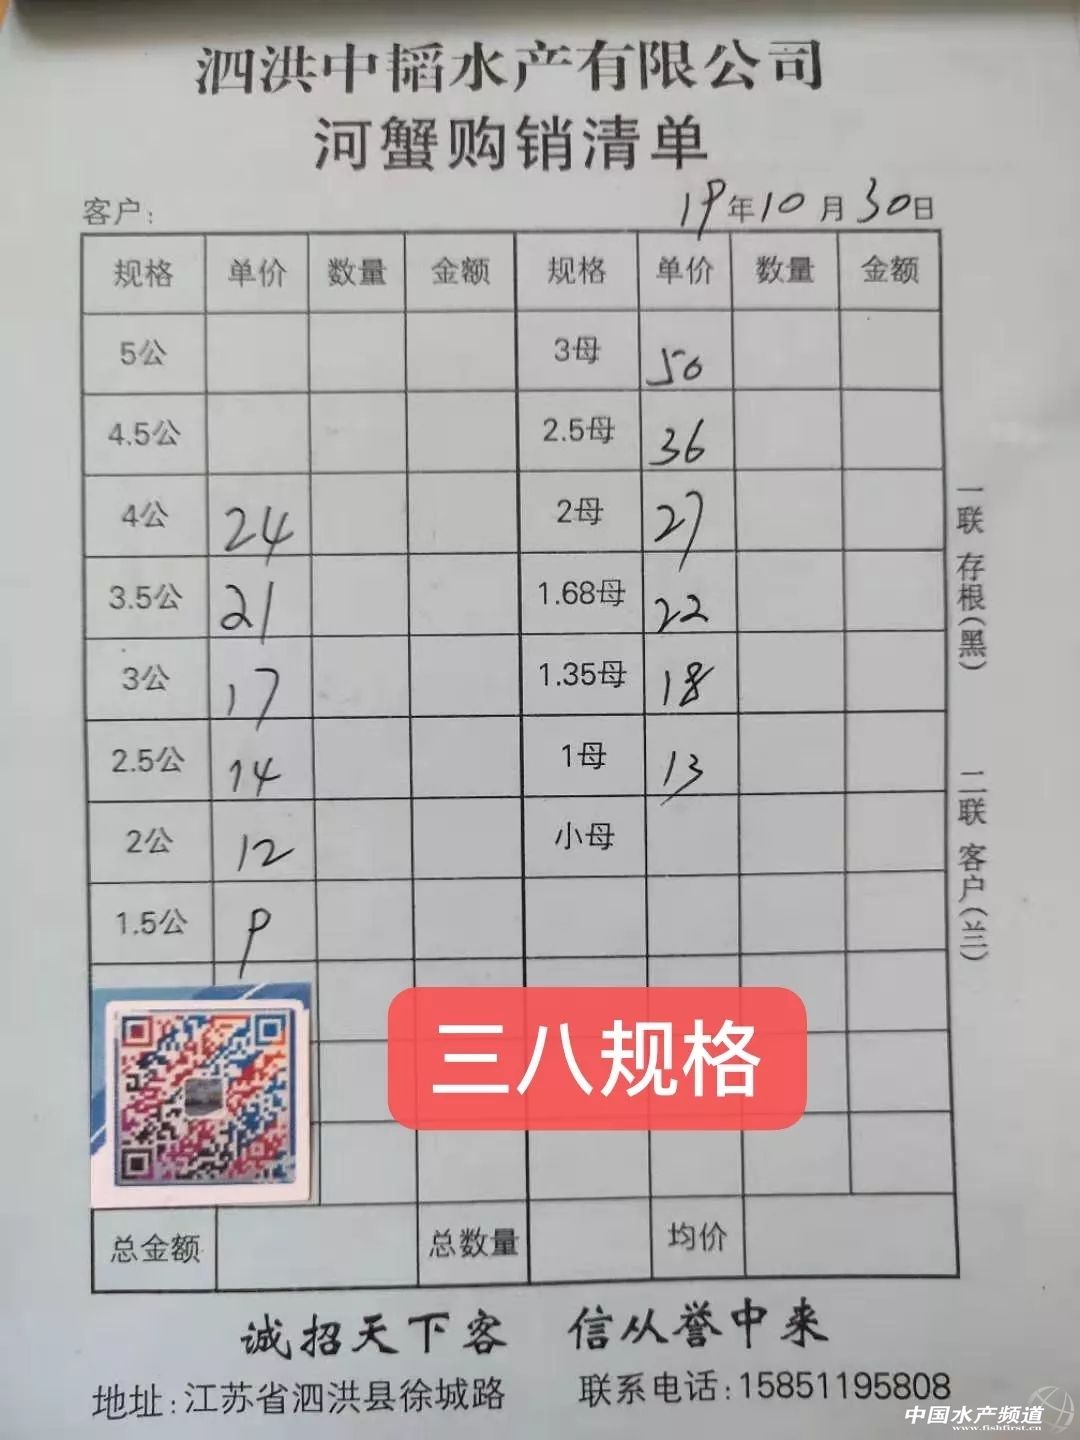 泗洪中韬水产有限公司
河蟹购销清单
客户: 19年10月30日
规格 单价 数量 金额 规格 单价 数量 金额
5公 3母 50
4.5公 2.5母 36
4公 24 2母 27
3.5公 21 1.68母 22
3公 17 1.35母 18
2.5公 14 1母 13
2公 12 小母
1.5公 9
三八规格
总金额 总数量 均价
一联 存根(黑) 二联 客户(兰)
诚招天下客 信从誉中来
地址:江苏省泗洪县徐城路 联系电话:15851195808
中国水产频道
www.fishfirst.cn